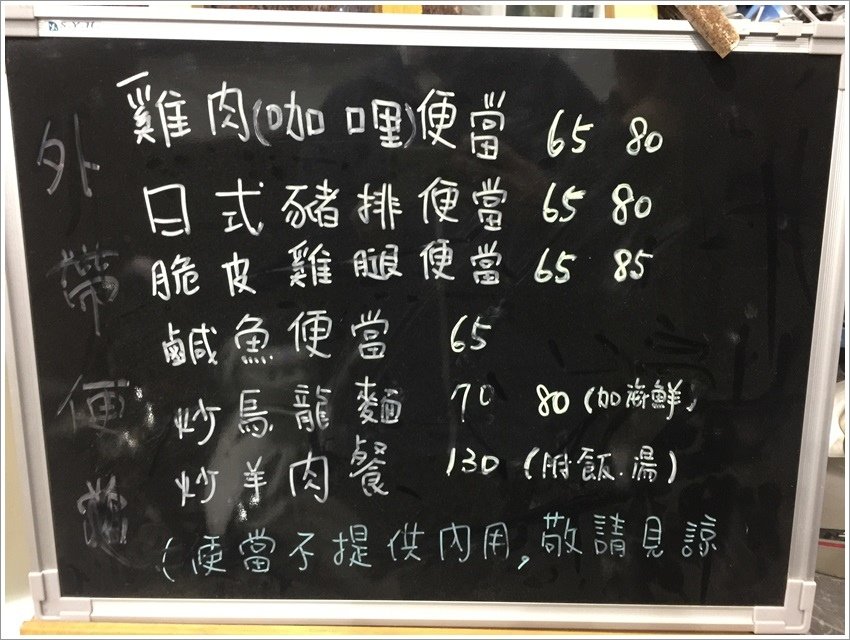 外帶便當
雞肉(咖哩)便當 65 80
日式豬排便當 65 80
脆皮雞腿便當 65 85
鹹魚便當 65
炒烏龍麵 70 80 (加海鮮)
炒羊肉餐 130 (附飯.湯)
(便當不提供內用,敬請見諒